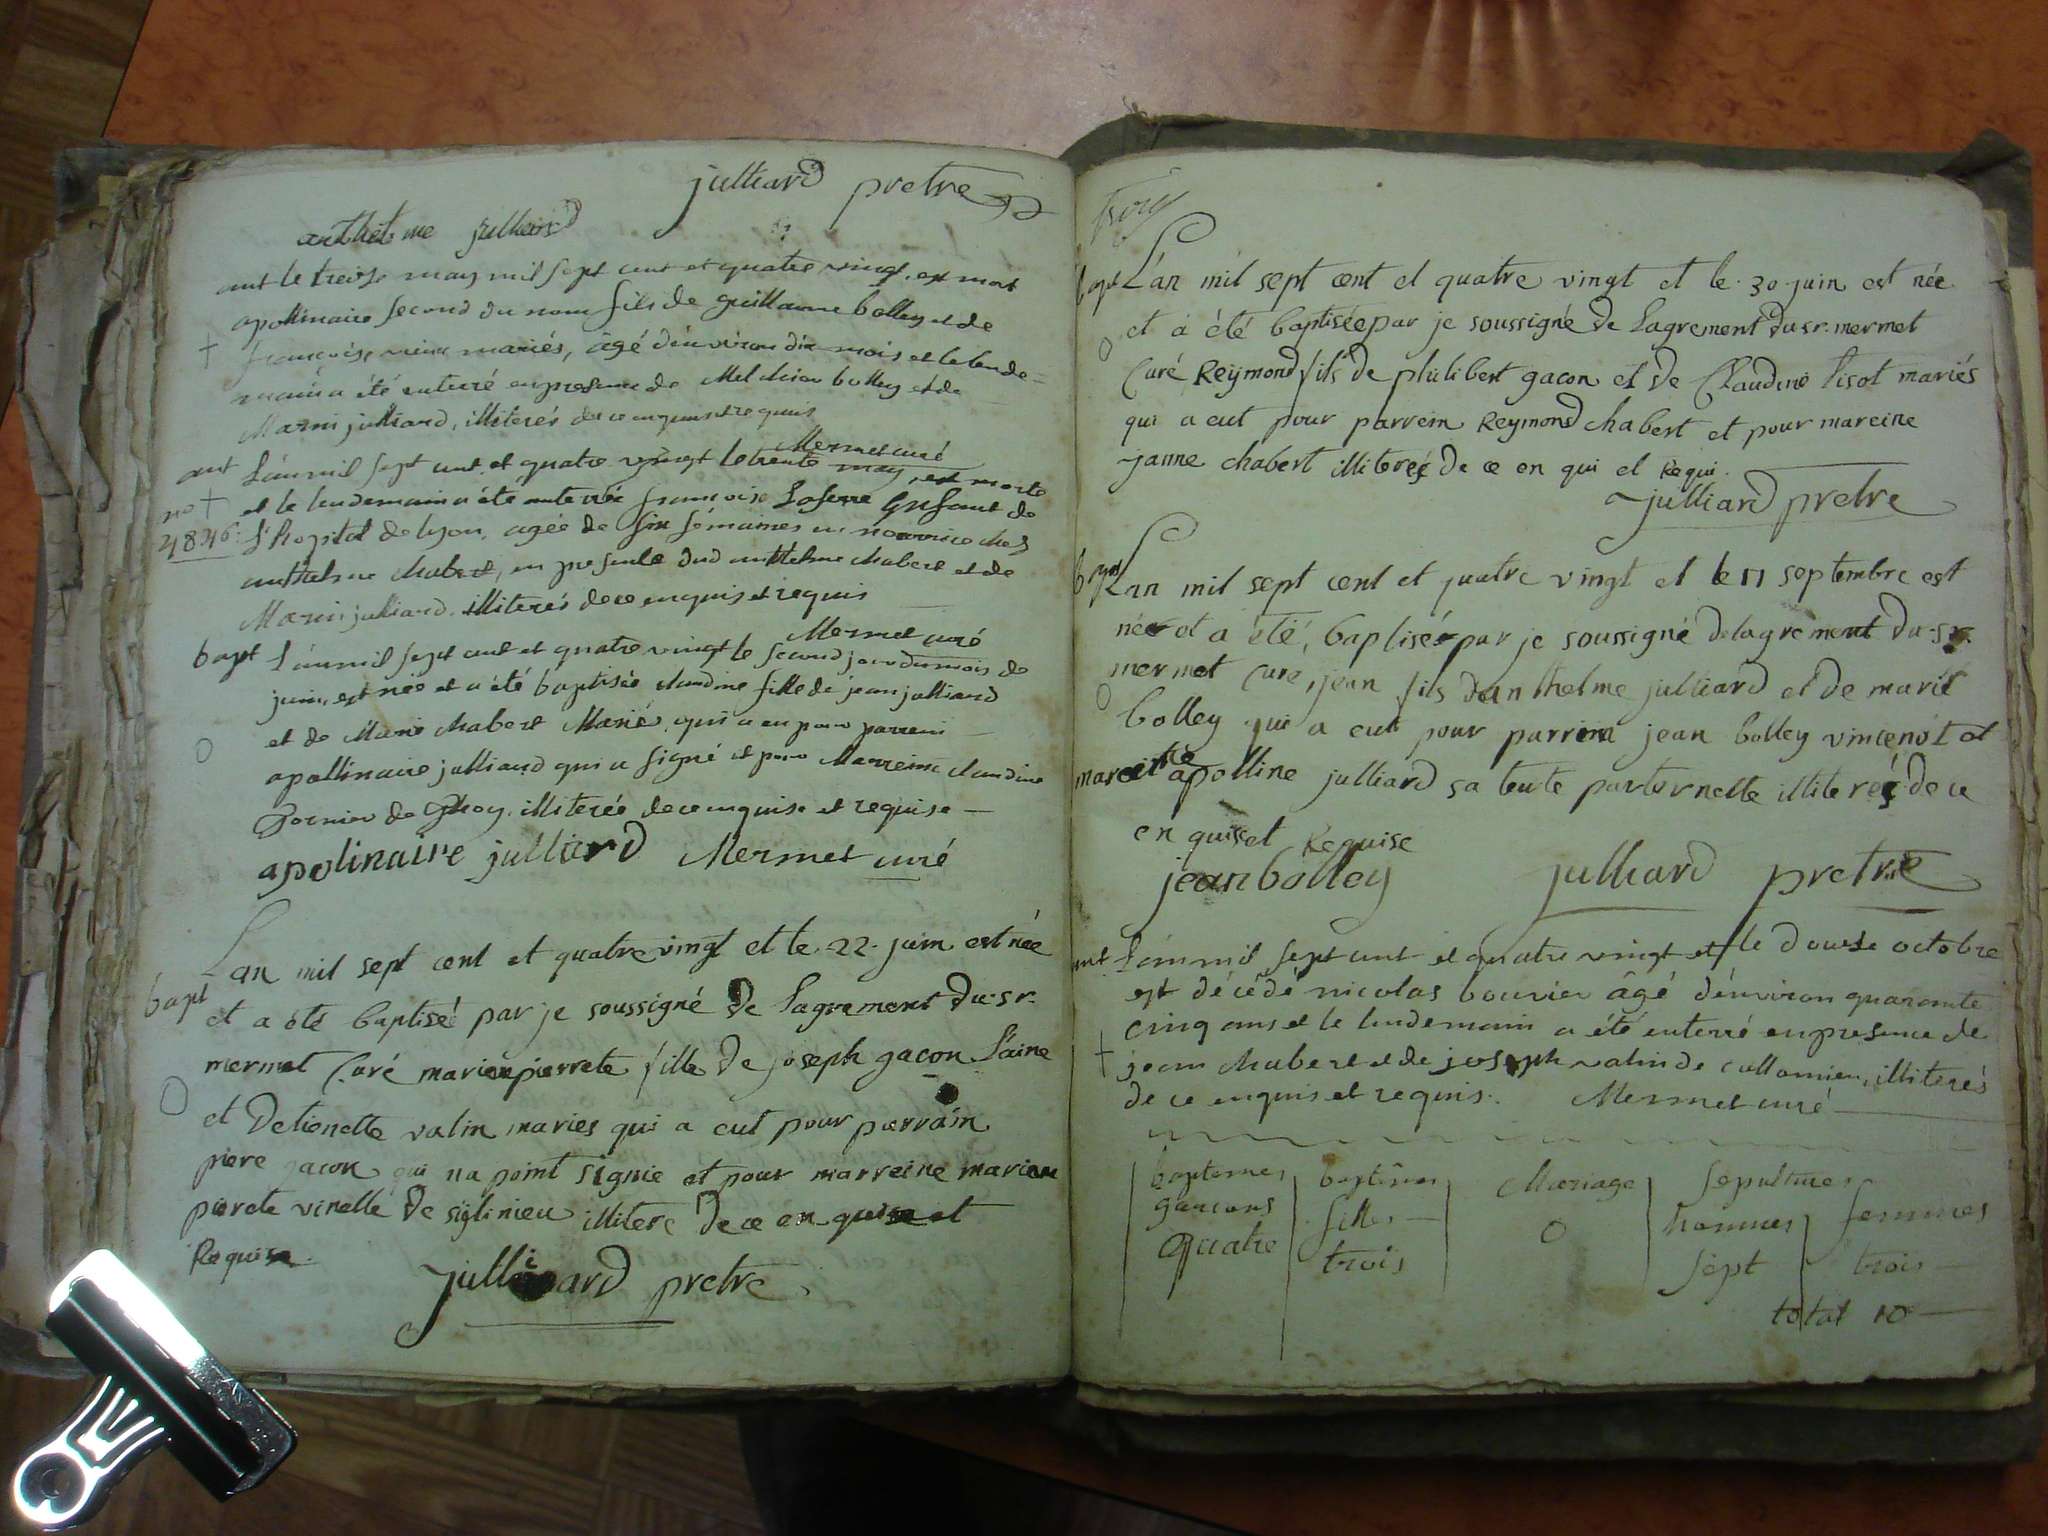 julliard pretre
anthelme julliard
ant le treize may mil sept cent et quatre vingt, est mort
apollinaire second du nom fils de guillaume bolley et de
françoise mariés, âgé d'environ dix mois et le lende=
main a été enterré en presence de Melchior bolley et de
Marin julliard, illiterés de ce enquis et requis
Mermet curé
ant L'an mil sept cent et quatre vingt le trente may, est morte
no † et le lendemain a été enterrée françoise Laserre Enfant de
4846: l'hopital de lyon, agée de six sémaines en nourrice chez
anthelme chabert, en presence dud anthelme chabert et de
Marin julliard, illiterés de ce enquis et requis
Mermet curé
bapt L'an mil sept cent et quatre vingt le second jour du mois de
juin, est née et a été baptisée claudine fille de jean julliard
et de Marie chabert Mariés, qui a eu pour parrein
apollinaire julliard qui a signé et pour Marreine claudine
de illiterée de ce enquise et requise —
apolinaire julliard Mermet curé
bapt Lan mil sept cent et quatre vingt et le 22 juin est née
et a été baptisé par je soussigné De Lagrement Du sr.
mermet Curé marie pierrete fille De joseph gacon L'aine
et De tienette valin maries qui a eut pour parrain
piere gacon qui na point signie et pour marreine marie
pierete vinette De siglinieu illitere De ce en quise et
Requise
Julliard pretre
bapt L'an mil sept cent et quatre vingt et le 30 juin est née
et a été baptisée par je soussigné De Lagrement Du sr. mermet
Curé Reymond fils De philibert gacon et De Claudine tisot mariés
qui a eut pour parrein Reymond chabert et pour mareine
janne chabert illiterés De ce en qui et Requi.
julliard pretre
bapt Lan mil sept cent et quatre vingt et le 11 septembre est
née et a été, baptisée par je soussigné De lagrement Du sr.
mermet Curé, jean fils D'anthelme julliard et de marie
bolley qui a eut pour parrein jean bolley vincenot et
mareine apolline julliard sa tente parternelle illiterés De ce
en quise et Requise
jean bolley julliard pretre
ant L'an mil sept cent et quatre vingt et le douze octobre
est décédé nicolas bouvier âgé d'environ quarante
cinq ans et le lendemain a été enterré en presence de
† jean chabert et de joseph valin de cullomieu, illiterés
de ce enquis et requis. Mermet curé
baptemes baptêmes Mariage sepultures
garçons filles — 0 hommes femmes
quatre trois sept trois —
total 10 —